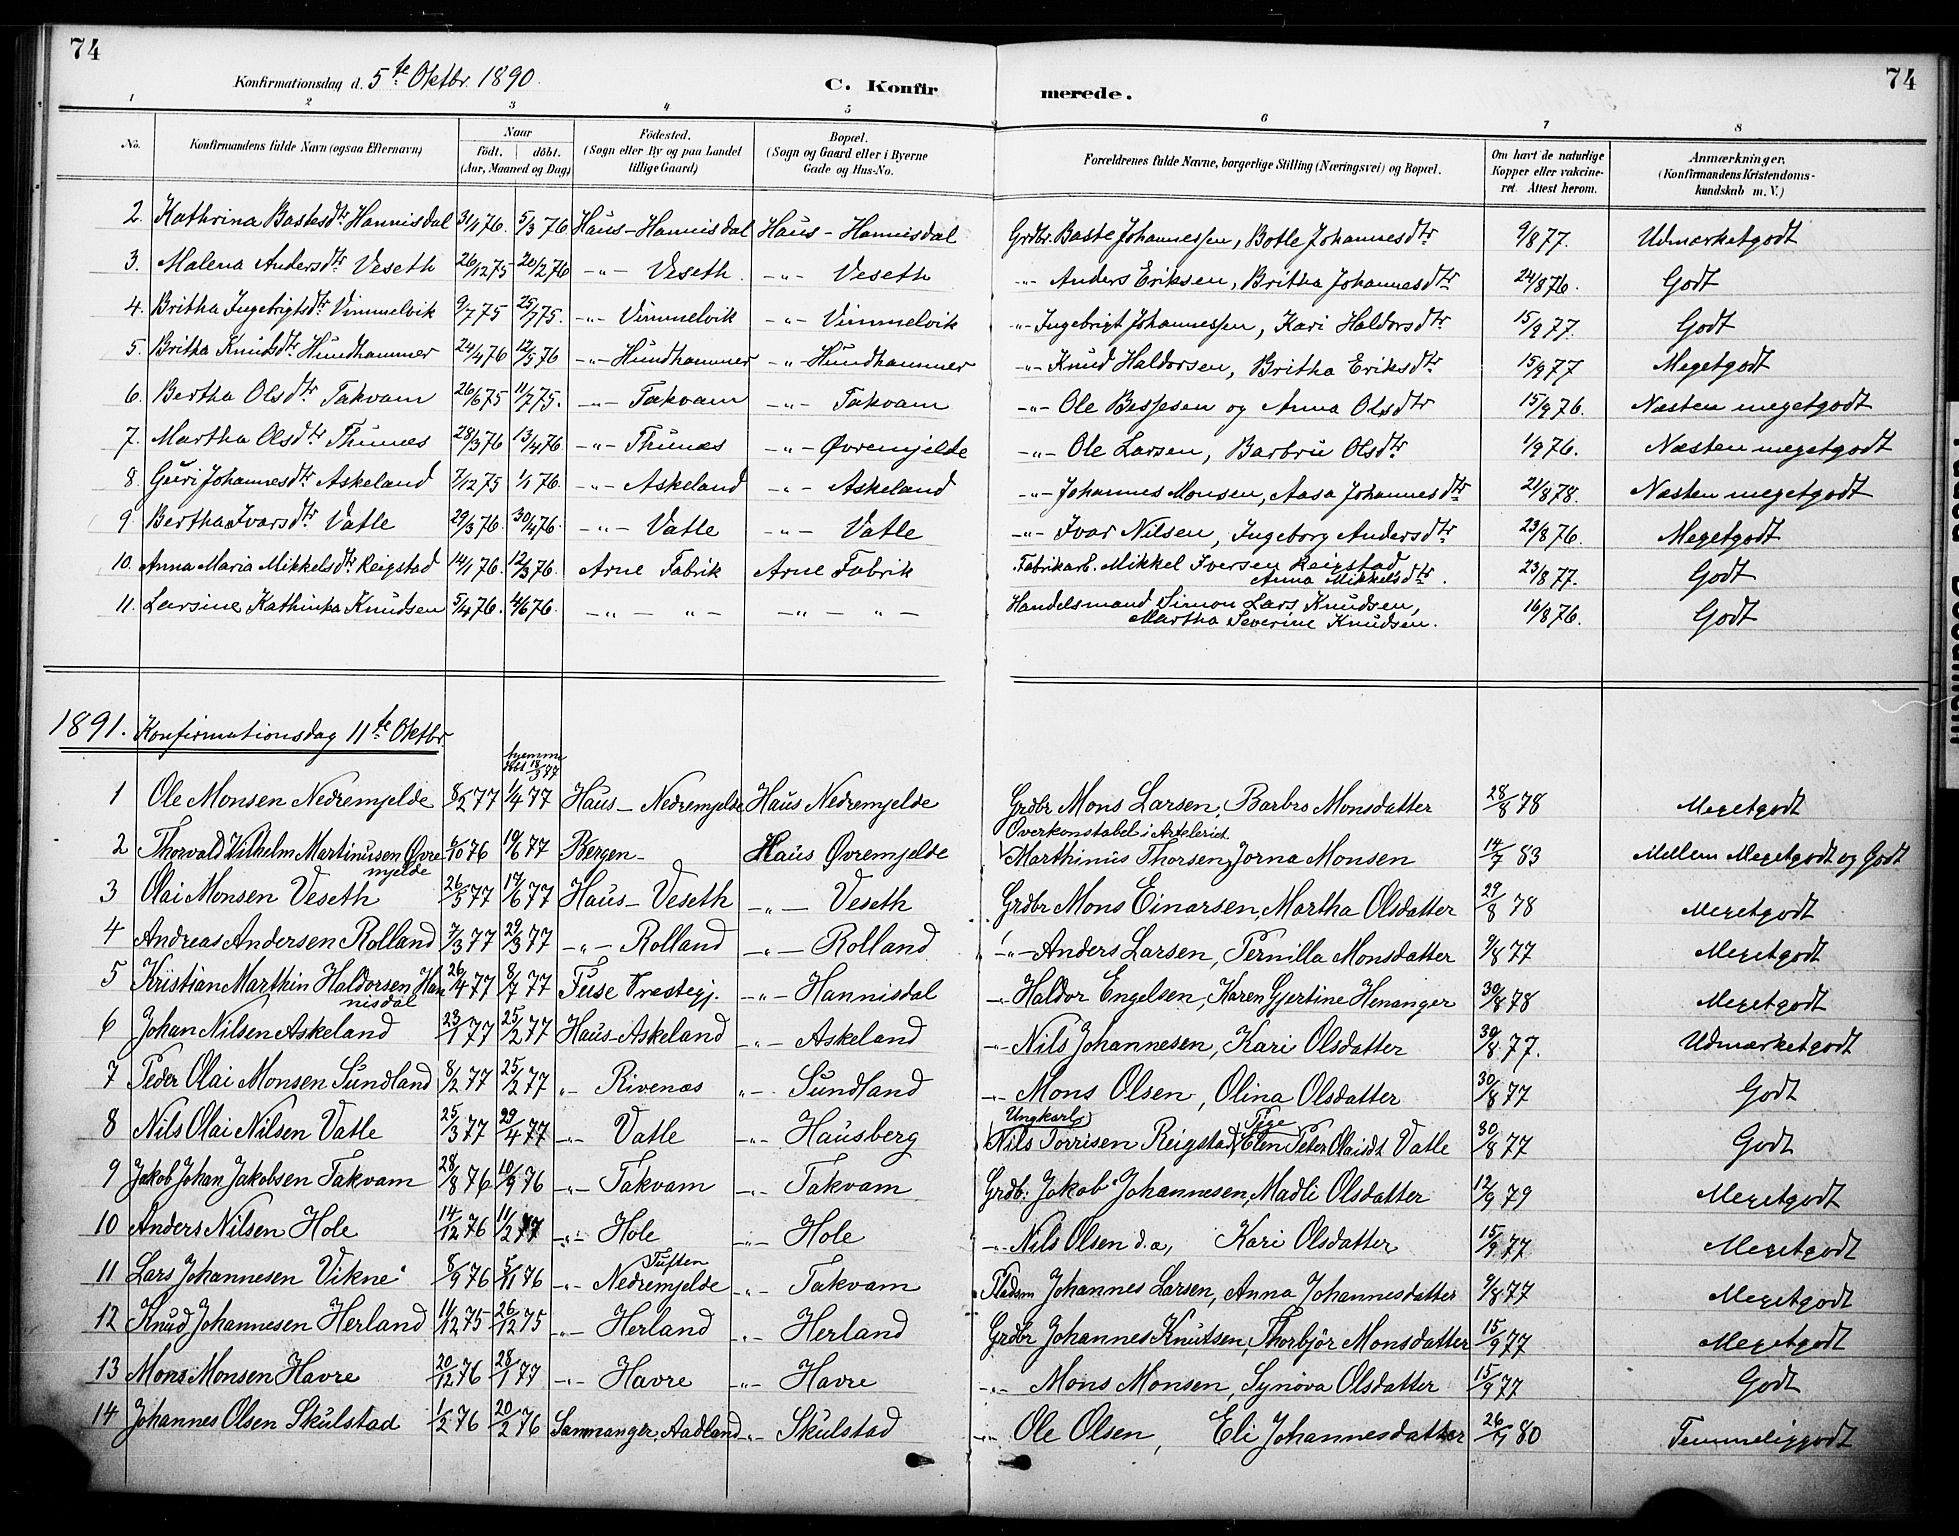 74
Konfirmationsdag d. 5te Oktbr. 1890.
C. Konfirmerede.
74
1 2 3 4 5 6 7 8
No. Konfirmandens fulde Navn (ogsaa Efternavn) Naar født. døbt. (Aar, Maaned og Dag) Fødested. (Sogn eller By og paa Landet tillige Gaard) Bopæl. (Sogn og Gaard eller i Byerne Gade og Hus-No. Forældrenes fulde Navne, borgerlige Stilling (Næringsvei) og Bopæl. Om havt de naturlige Kopper eller vakcineret. Attest herom. Anmærkninger. (Konfirmandens Kristendomskundskab m. V.)
2. Kathrina Bastesdtr Hannisdal 31/1 76. 5/3 76 Haus-Hannisdal Haus - Hannisdal Grdbr. Baste Johannessen, Botle Johannesdtr 9/8 77. Udmærketgodt
3. Malena Andersdtr Veseth 26/12 75 20/2 76 -"- Veseth. -"- Veseth -"- Anders Eriksen, Britha Johannesdtr 24/8 76. Godt
4. Britha Ingebrigtsdtr Vimmelvik 9/7 75 25/7 75. -"- Vimmelvik -"- Vimmelvik -"- Ingebrigt Johannessen, Kari Haldorsdtr 15/9 77. Godt
5. Britha Knudsdtr Hundhammer 24/4 76 12/5 76 -"- Hundhammer -"- Hundhammer -"- Knud Haldorsen, Britha Eriksdtr 15/9 77 Megetgodt
6. Bertha Olsdtr Takvam 26/6 75 11/7 75. -"- Takvam -"- Takvam -"- Ole Bessesen og Anna Olsdtr 15/9 76. Næsten megetgodt
7. Martha Olsdtr Thunes 28/3 76 13/4 76. -"- Thunæs -"- Øvremjelde -"- Ole Larsen, Barbru Olsdtr. 1/9 76. Næsten megetgodt
8. Guri Johannesdtr Askeland 7/12 75 1/1 76. -"- Askeland -"- Askeland -"- Johannes Monsen, Aasa Johannesdtr 21/8 78. Næsten megetgodt
9. Bertha Ivarsdtr Vatle 29/3 76. 30/4 76. -"- Vatle -"- Vatle -"- Ivar Nilsen, Ingeborg Andersdtr 23/8 76. Megetgodt
10. Anna Maria Mikkelsdtr Reigstad 14/1 76. 12/3 76. Arne Fabrik Arne Fabrik Fabrikarb. Mikkel Iversen Reigstad 23/8 77. Godt
Anna Mikkelsdtr.
11. Larsine Kathinka Knudsen 5/4 76. 4/6 76. -"- -"- -"- -"- Handelsmand Simon Lars Knudsen, 16/8 76. Godt
Martha Severine Knudsen.
1891. Konfirmationsdag 11te Oktbr.
hjemme døbt 18/3 77
1 Ole Monsen Nedremjelde 8/2 77 1/4 77 Haus- Nedremjelde Haus Nedremjelde Grdbr Mons Larsen, Barbro Monsdatter 28/8 78 Megetgodt
Overkonstabel i Artileriet
2 Thorvald Vilhelm Martinusen Øvremjelde 6/10 76 10/6 77 Bergen- Haus Øvremjelde Marthinus Thorsen, Jorna Monsen 14/7 83 Mellem Megetgodt og Godt
3 Olai Monsen Veseth 26/5 77 17/6 77 Haus- Veseth -"- Veseth Grdbr Mons Einarsen, Martha Olsdatter 29/8 78 Megetgodt
4 Andreas Andersen Rolland 7/3 77 29/3 77 -"- Rolland -"- Rolland -"- Anders Larsen, Pernilla Monsdatter 9/8 77 Megetgodt
5 Kristian Marthin Haldorsen Hannisdal 26/4 77 8/7 77 Fuse Præstegj. -"- Hannisdal -"- Haldor Engelsen, Karen Gjertine Henanger 30/8 78 Megetgodt
6 Johan Nilsen Askeland 23/1 77 25/2 77 Haus-Askeland -"- Askeland -"- Nils Johannesen, Kari Olsdatter 30/8 77. Udmærketgodt
7 Peder Olai Monsen Sundland 8/2 77 25/2 77 " Rivenæs -"- Sundland -"- Mons Olsen, Olina Olsdatter 30/8 77 Godt
Ungkarl Pige
8 Nils Olai Nilsen Vatle 25/3 77 29/4 77 -"- Vatle -"- Hausberg Nils Torrisen Reigstad, Elen Peter Olaisdt Vatle 30/8 77 Godt
9 Jakob Johan Jakobsen Takvam 28/8 76 10/9 76 -"- Takvam -"- Takvam Grdb: Jakob Johannesen, Madli Olsdatter 12/9 79 Megetgodt
10 Anders Nilsen Hole 14/12 76 11/2 77 -"- Hole -"- Hole -"- Nils Olsen d.a, Kari Olsdatter 15/9 77 Megetgodt
11 Lars Johannesen Vikne 8/9 76 5/11 76 -"- Nedremjelde Tuften -"- Takvam Pladsm Johannes Larsen, Anna Johannesdatter 9/8 77 Megetgodt
12 Knud Johannesen Herland 11/12 75 26/12 75 -"- Herland -"- Herland Grdbr Johannes Knutsen, Thorbjør Monsdatter 15/9 77 Megetgodt
13 Mons Monsen Havre 20/12 76 28/1 77 -"- Havre -"- Havre -"- Mons Monsen, Synøva Olsdatter 15/9 77 Godt
14 Johannes Olsen Skulstad 1/2 76 20/2 76 Sammanger, Aadland -"- Skulstad -"- Ole Olsen, Eli Johannesdatter 26/7 80 Temmeliggodt